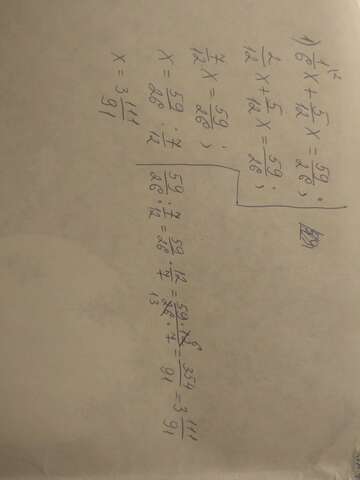 1) 1/6 \2 x + 5/12 x = 59/26;
2/12 x + 5/12 x = 59/26;
7/12 x = 59/26;
x = 59/26 : 7/12
x = 3 111/91
59/26 : 7/12 = 59/26 · 12/7 = 59 · 12 6 / 26 13 · 7 = 354/91 = 3 111/91